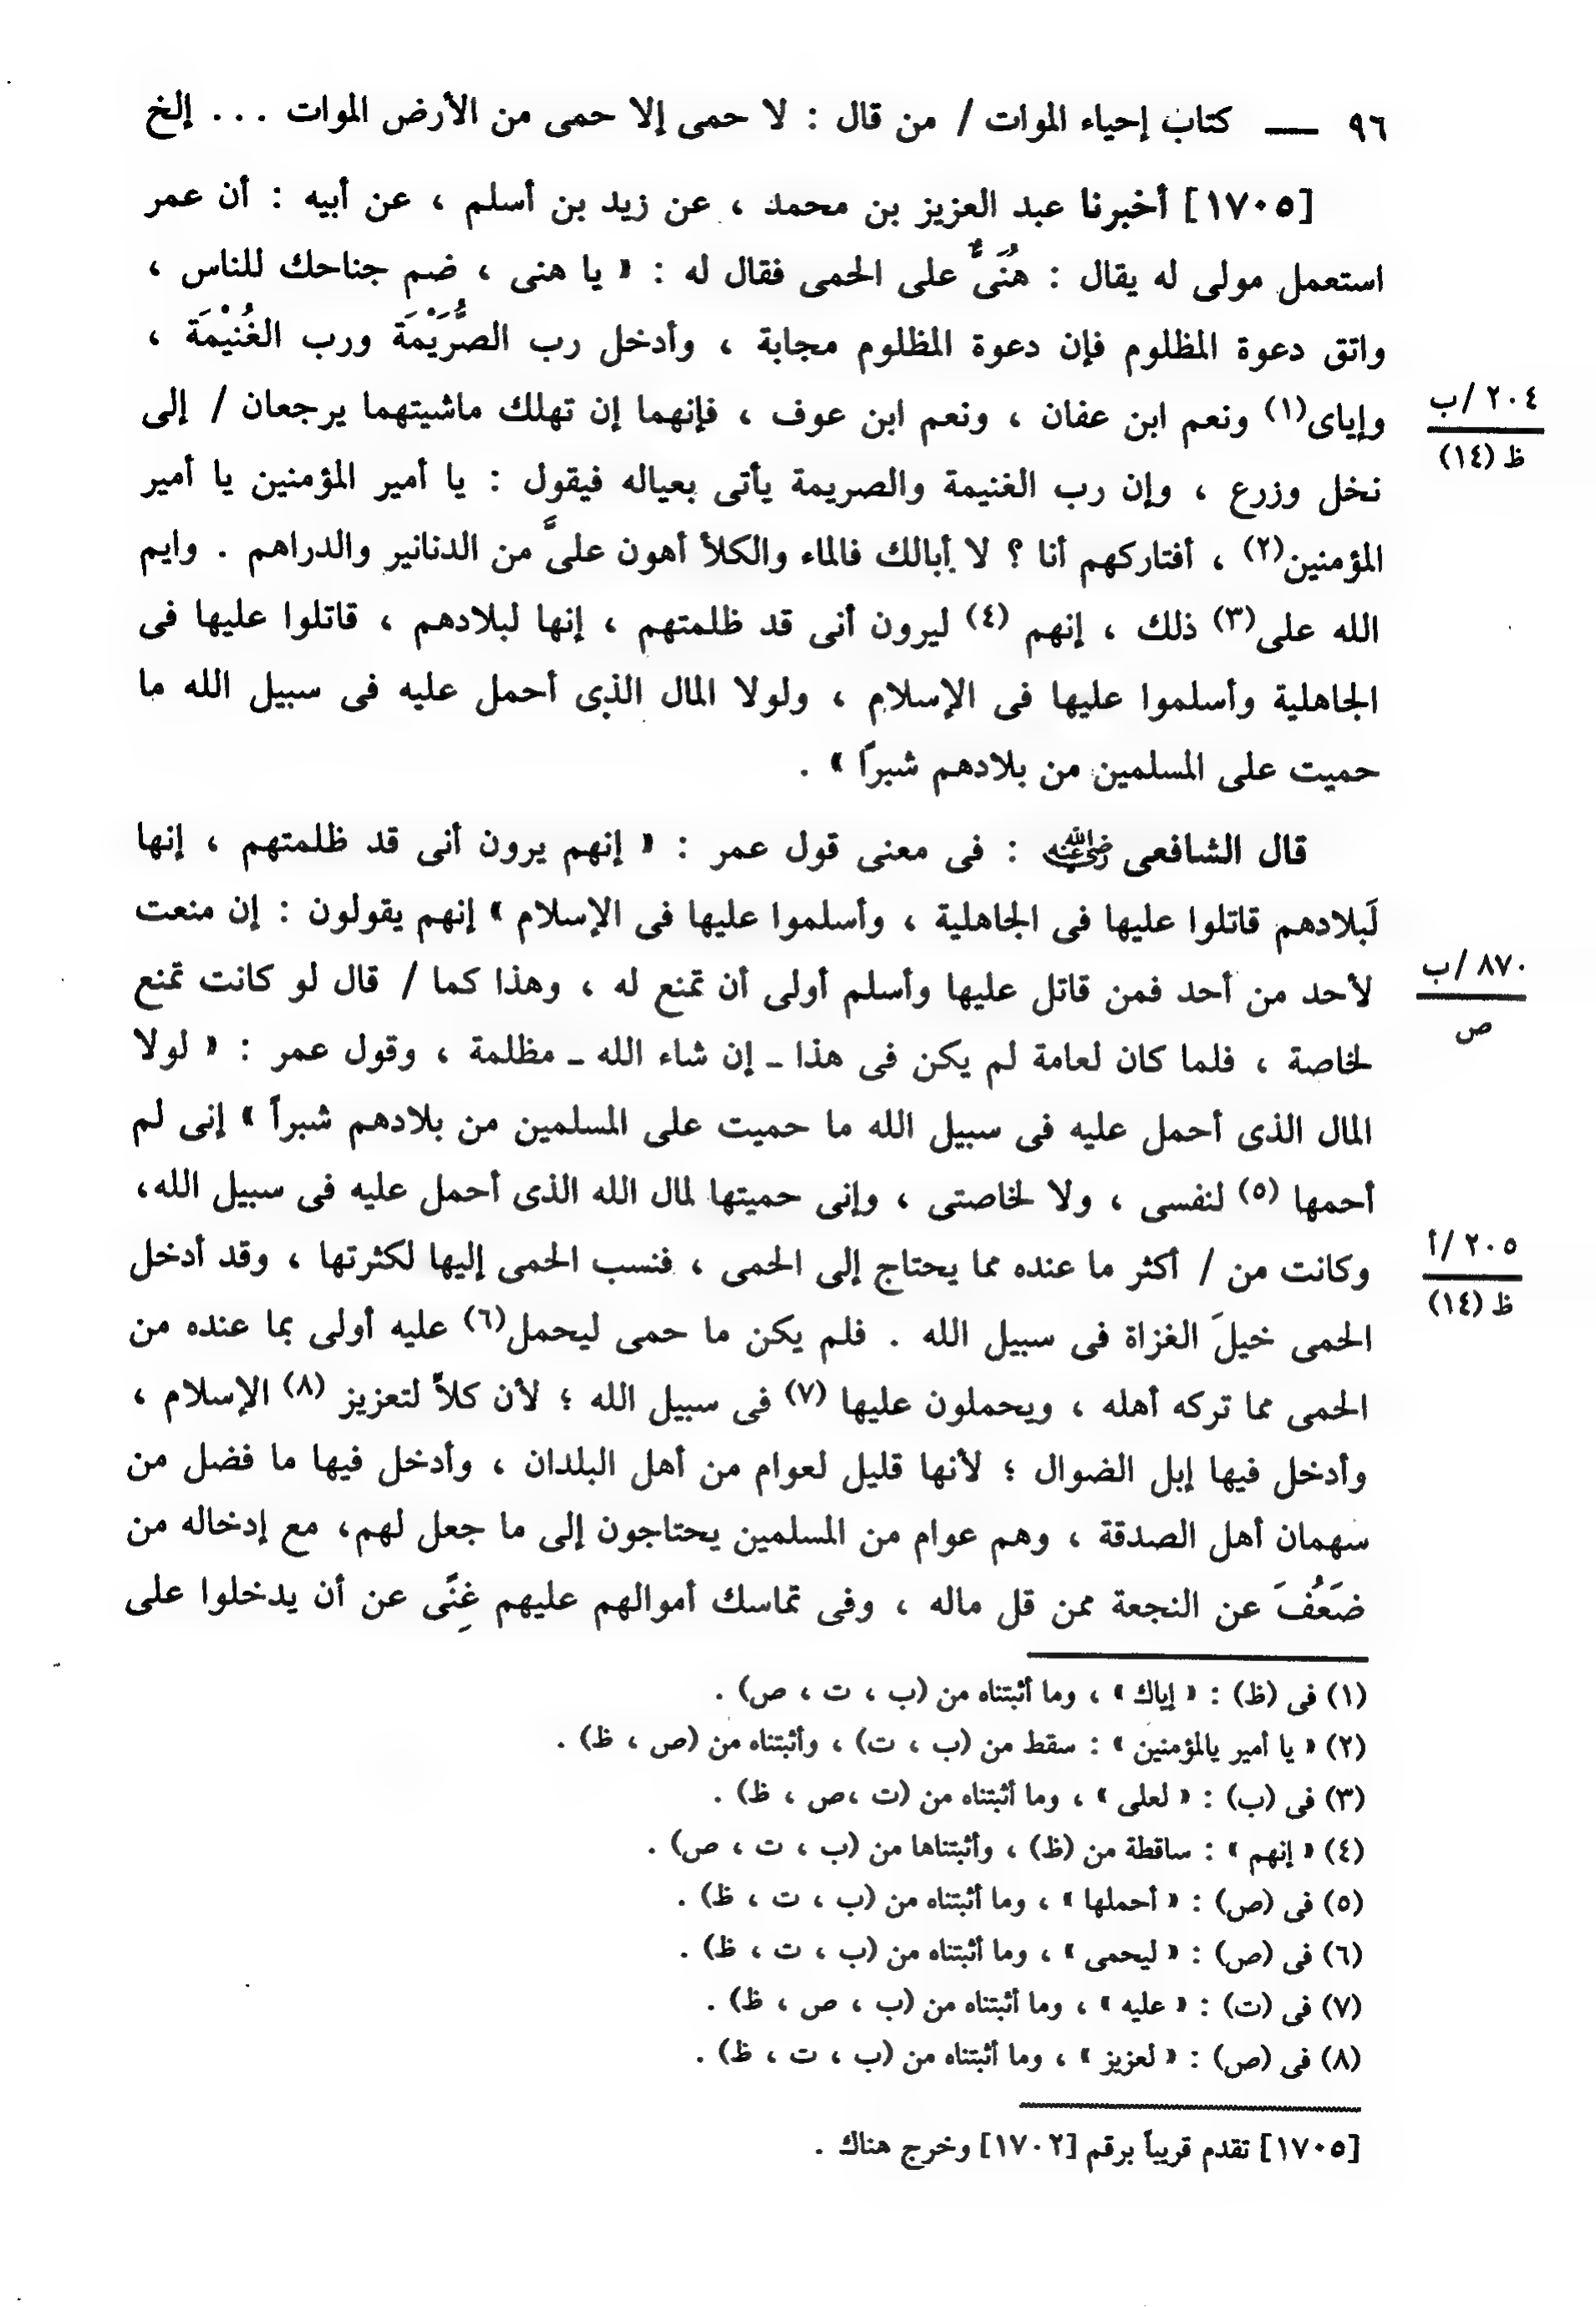 ٩٦ ــــ كتاب إحياء الموات / من قال : لا حمى إلا حمى من الأرض الموات . . . إلخ
[١٧٠٥] أخبرنا عبد العزيز بن محمد ، عن زيد بن أسلم ، عن أبيه : أن عمر
استعمل مولى له يقال : هُنَىٌّ على الحمى فقال له : « يا هنى ، ضم جناحك للناس ،
واتق دعوة المظلوم فإن دعوة المظلوم مجابة ، وأدخل رب الصُّرَيْمَة ورب الغُنَيْمَة ،
وإياى(١) ونعم ابن عفان ، ونعم ابن عوف ، فإنهما إن تهلك ماشيتهما يرجعان / إلى
٢٠٤ /ب
ظ (١٤)
نخل وزرع ، وإن رب الغنيمة والصريمة يأتى بعياله فيقول : يا أمير المؤمنين يا أمير
المؤمنين(٢) ، أفتاركهم أنا ؟ لا أبالك فالماء والكلأ أهون علىَّ من الدنانير والدراهم . وايم
الله على(٣) ذلك ، إنهم (٤) ليرون أنى قد ظلمتهم ، إنها لبلادهم ، قاتلوا عليها فى
الجاهلية وأسلموا عليها فى الإسلام ، ولولا المال الذى أحمل عليه فى سبيل الله ما
حميت على المسلمين من بلادهم شبراً » .
قال الشافعى رضي الله عنه : فى معنى قول عمر : « إنهم يرون أنى قد ظلمتهم ، إنها
لَبلادهم قاتلوا عليها فى الجاهلية ، وأسلموا عليها فى الإسلام » إنهم يقولون : إن منعت
لأحد من أحد فمن قاتل عليها وأسلم أولى أن تمنع له ، وهذا كما / قال لو كانت تمنع
٨٧٠ /ب
ص
لخاصة ، فلما كان لعامة لم يكن فى هذا ـ إن شاء الله ـ مظلمة ، وقول عمر : « لولا
المال الذى أحمل عليه فى سبيل الله ما حميت على المسلمين من بلادهم شبراً » إنى لم
أحمها (٥) لنفسى ، ولا لخاصتى ، وإنى حميتها لمال الله الذى أحمل عليه فى سبيل الله،
وكانت من / أكثر ما عنده مما يحتاج إلى الحمى ، فنسب الحمى إليها لكثرتها ، وقد أدخل
٢٠٥ /أ
ظ (١٤)
الحمى خيلَ الغزاة فى سبيل الله . فلم يكن ما حمى ليحمل(٦) عليه أولى بما عنده من
الحمى مما تركه أهله ، ويحملون عليها (٧) فى سبيل الله ؛ لأن كلاًّ لتعزيز (٨) الإسلام ،
وأدخل فيها إبل الضوال ؛ لأنها قليل لعوام من أهل البلدان ، وأدخل فيها ما فضل من
سهمان أهل الصدقة ، وهم عوام من المسلمين يحتاجون إلى ما جعل لهم، مع إدخاله من
ضَعُفَ عن النجعة ممن قل ماله ، وفى تماسك أموالهم عليهم غِنًى عن أن يدخلوا على
(١) فى (ظ) : « إياك » ، وما أثبتناه من (ب ، ت ، ص) .
(٢) « يا أمير يالمؤمنين » : سقط من (ب ، ت) ، وأثبتناه من (ص ، ظ) .
(٣) فى (ب) : « لعلى » ، وما أثبتناه من (ت ،ص ، ظ) .
(٤) « إنهم » : ساقطة من (ظ) ، وأثبتناها من (ب ، ت ، ص) .
(٥) فى (ص) : « أحملها » ، وما أثبتناه من (ب ، ت ، ظ) .
(٦) فى (ص) : « ليحمى » ، وما أثبتناه من (ب ، ت ، ظ) .
(٧) فى (ت) : « عليه » ، وما أثبتناه من (ب ، ص ، ظ) .
(٨) فى (ص) : « لعزيز » ، وما أثبتناه من (ب ، ت ، ظ) .
[١٧٠٥] تقدم قريباً برقم [١٧٠٢] وخرج هناك .